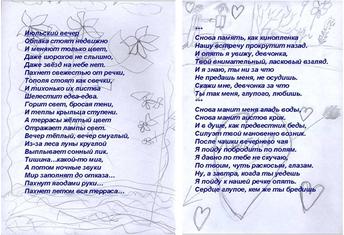 Июльский вечер
Облака стоят недвижно
И меняют только цвет,
Даже шорохов не слышно,
Даже звёзд на небе нет.
Пахнет свежестью от речки,
Тополя стоят как свечки,
И тихонько их листва
Шелестит едва-едва.
Горит свет, бросая тени,
И теплы крыльца ступени.
А террасы жёлтый цвет
Отражает лампы свет.
Вечер тёплый, вечер смуглый,
Из-за леса луны круглой
Выплывает сонный лик.
Тишина...какой-то миг,
А потом ночные звуки
Мир заполнят до отказа...
Пахнут ягодами руки...
Пахнет летом вся терраса...
***
Снова память, как киноплёнка
Нашу встречу прокрутит назад.
И опять я увижу, девчонка,
Твой внимательный, ласковый взгляд.
И я знаю, ты ни за что
Не предашь меня, не осудишь.
Скажи мне, девчонка за что
Ты так меня, глупого, любишь.
***
Снова манит меня гладь воды,
Снова манит аистов крик.
И в душе, как предвестник беды,
Силуэт твой мгновенно возник.
После чашки вечернего чая
Я пойду побродить по полям.
Я давно по тебе не скучаю,
По твоим, чуть раскосым, глазам.
Ну, а завтра, когда ты уедешь
Я пойду к нашей речке опять.
Сердце глупое, кем же ты бредишь